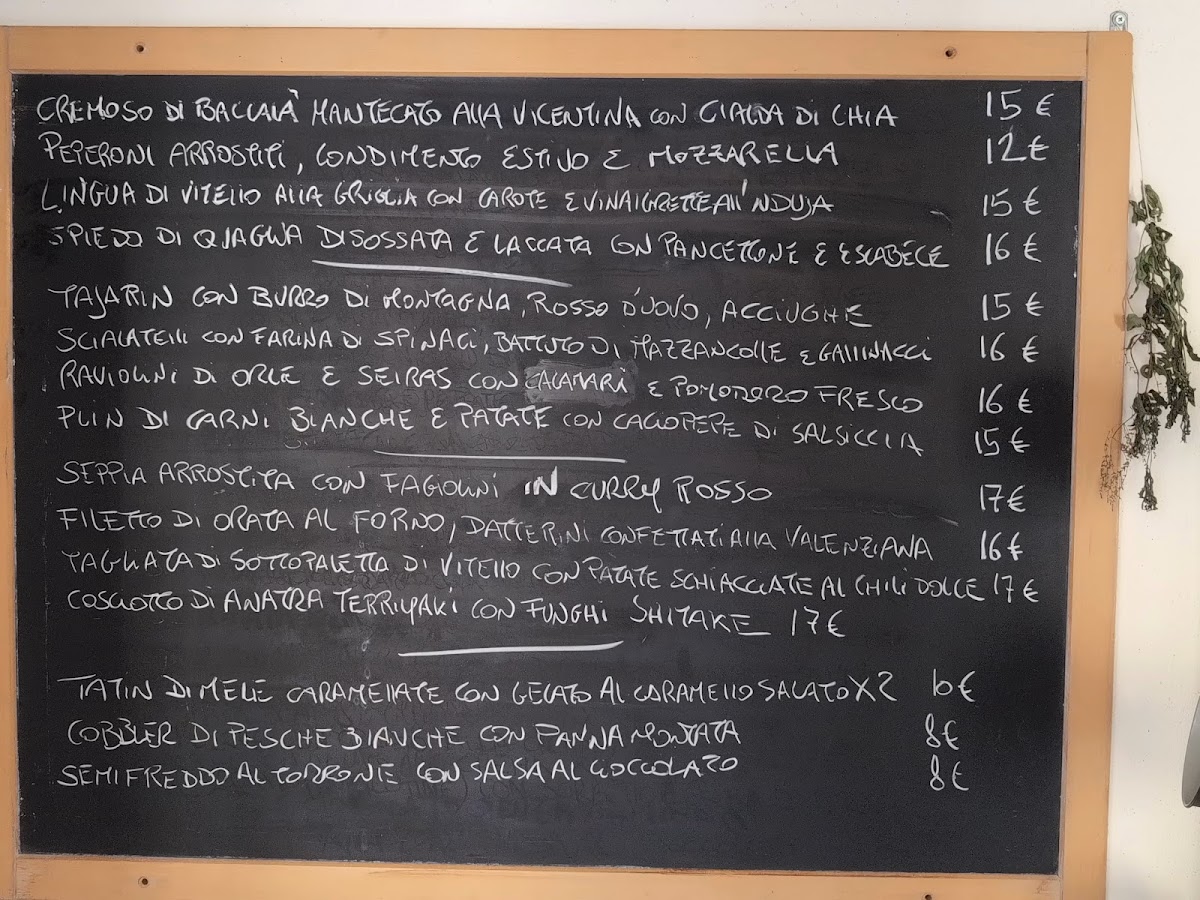 CREMOSO DI BACCALÀ MANTECATO ALLA VICENTINA CON CIALDA DI CHIA 15 €
PEPERONI ARROSTITI, CONDIMENTO ESTIVO E MOZZARELLA 12 €
LINGUA DI VITELLO ALLA GRIGLIA CON CAROTE E VINAIGRETTE ALL'NDUJA 15 €
SPIEDO DI QUAGLIA DISOSSATA E LACCATA CON PANCETTONE E ESCABECE 16 €
TAJARIN CON BURRO DI MONTAGNA, ROSSO D'UOVO, ACCIUGHE 15 €
SCIALATELLI CON FARINA DI SPINACI, BATTUTO DI MAZZANCOLLE E GALLINACCI 16 €
RAVIOLINI DI ORLE E SEIRAS CON CALAMARI E POMODORO FRESCO 16 €
PLIN DI CARNI BIANCHE E PATATE CON CACIOPEPE DI SALSICCIA 15 €
SEPPIA ARROSTITA CON FAGIOLINI IN CURRY ROSSO 17 €
FILETTO DI ORATA AL FORNO, DATTERINI CONFETTATI ALLA VALENZIANA 16 €
TAGLIATA DI SOTTOPALETTA DI VITELLO CON PATATE SCHIACCIATE AL CHILI DOLCE 17 €
COSCIOTTO DI ANATRA TERRIYAKI CON FUNGHI SHITAKE 17 €
TATIN DI MELE CARAMELLATE CON GELATO AL CARAMELLO SALATO X2 10 €
COBBLER DI PESCHE BIANCHE CON PANNA MONTATA 8 €
SEMIFREDDO AL TORRONE CON SALSA AL CIOCCOLATO 8 €